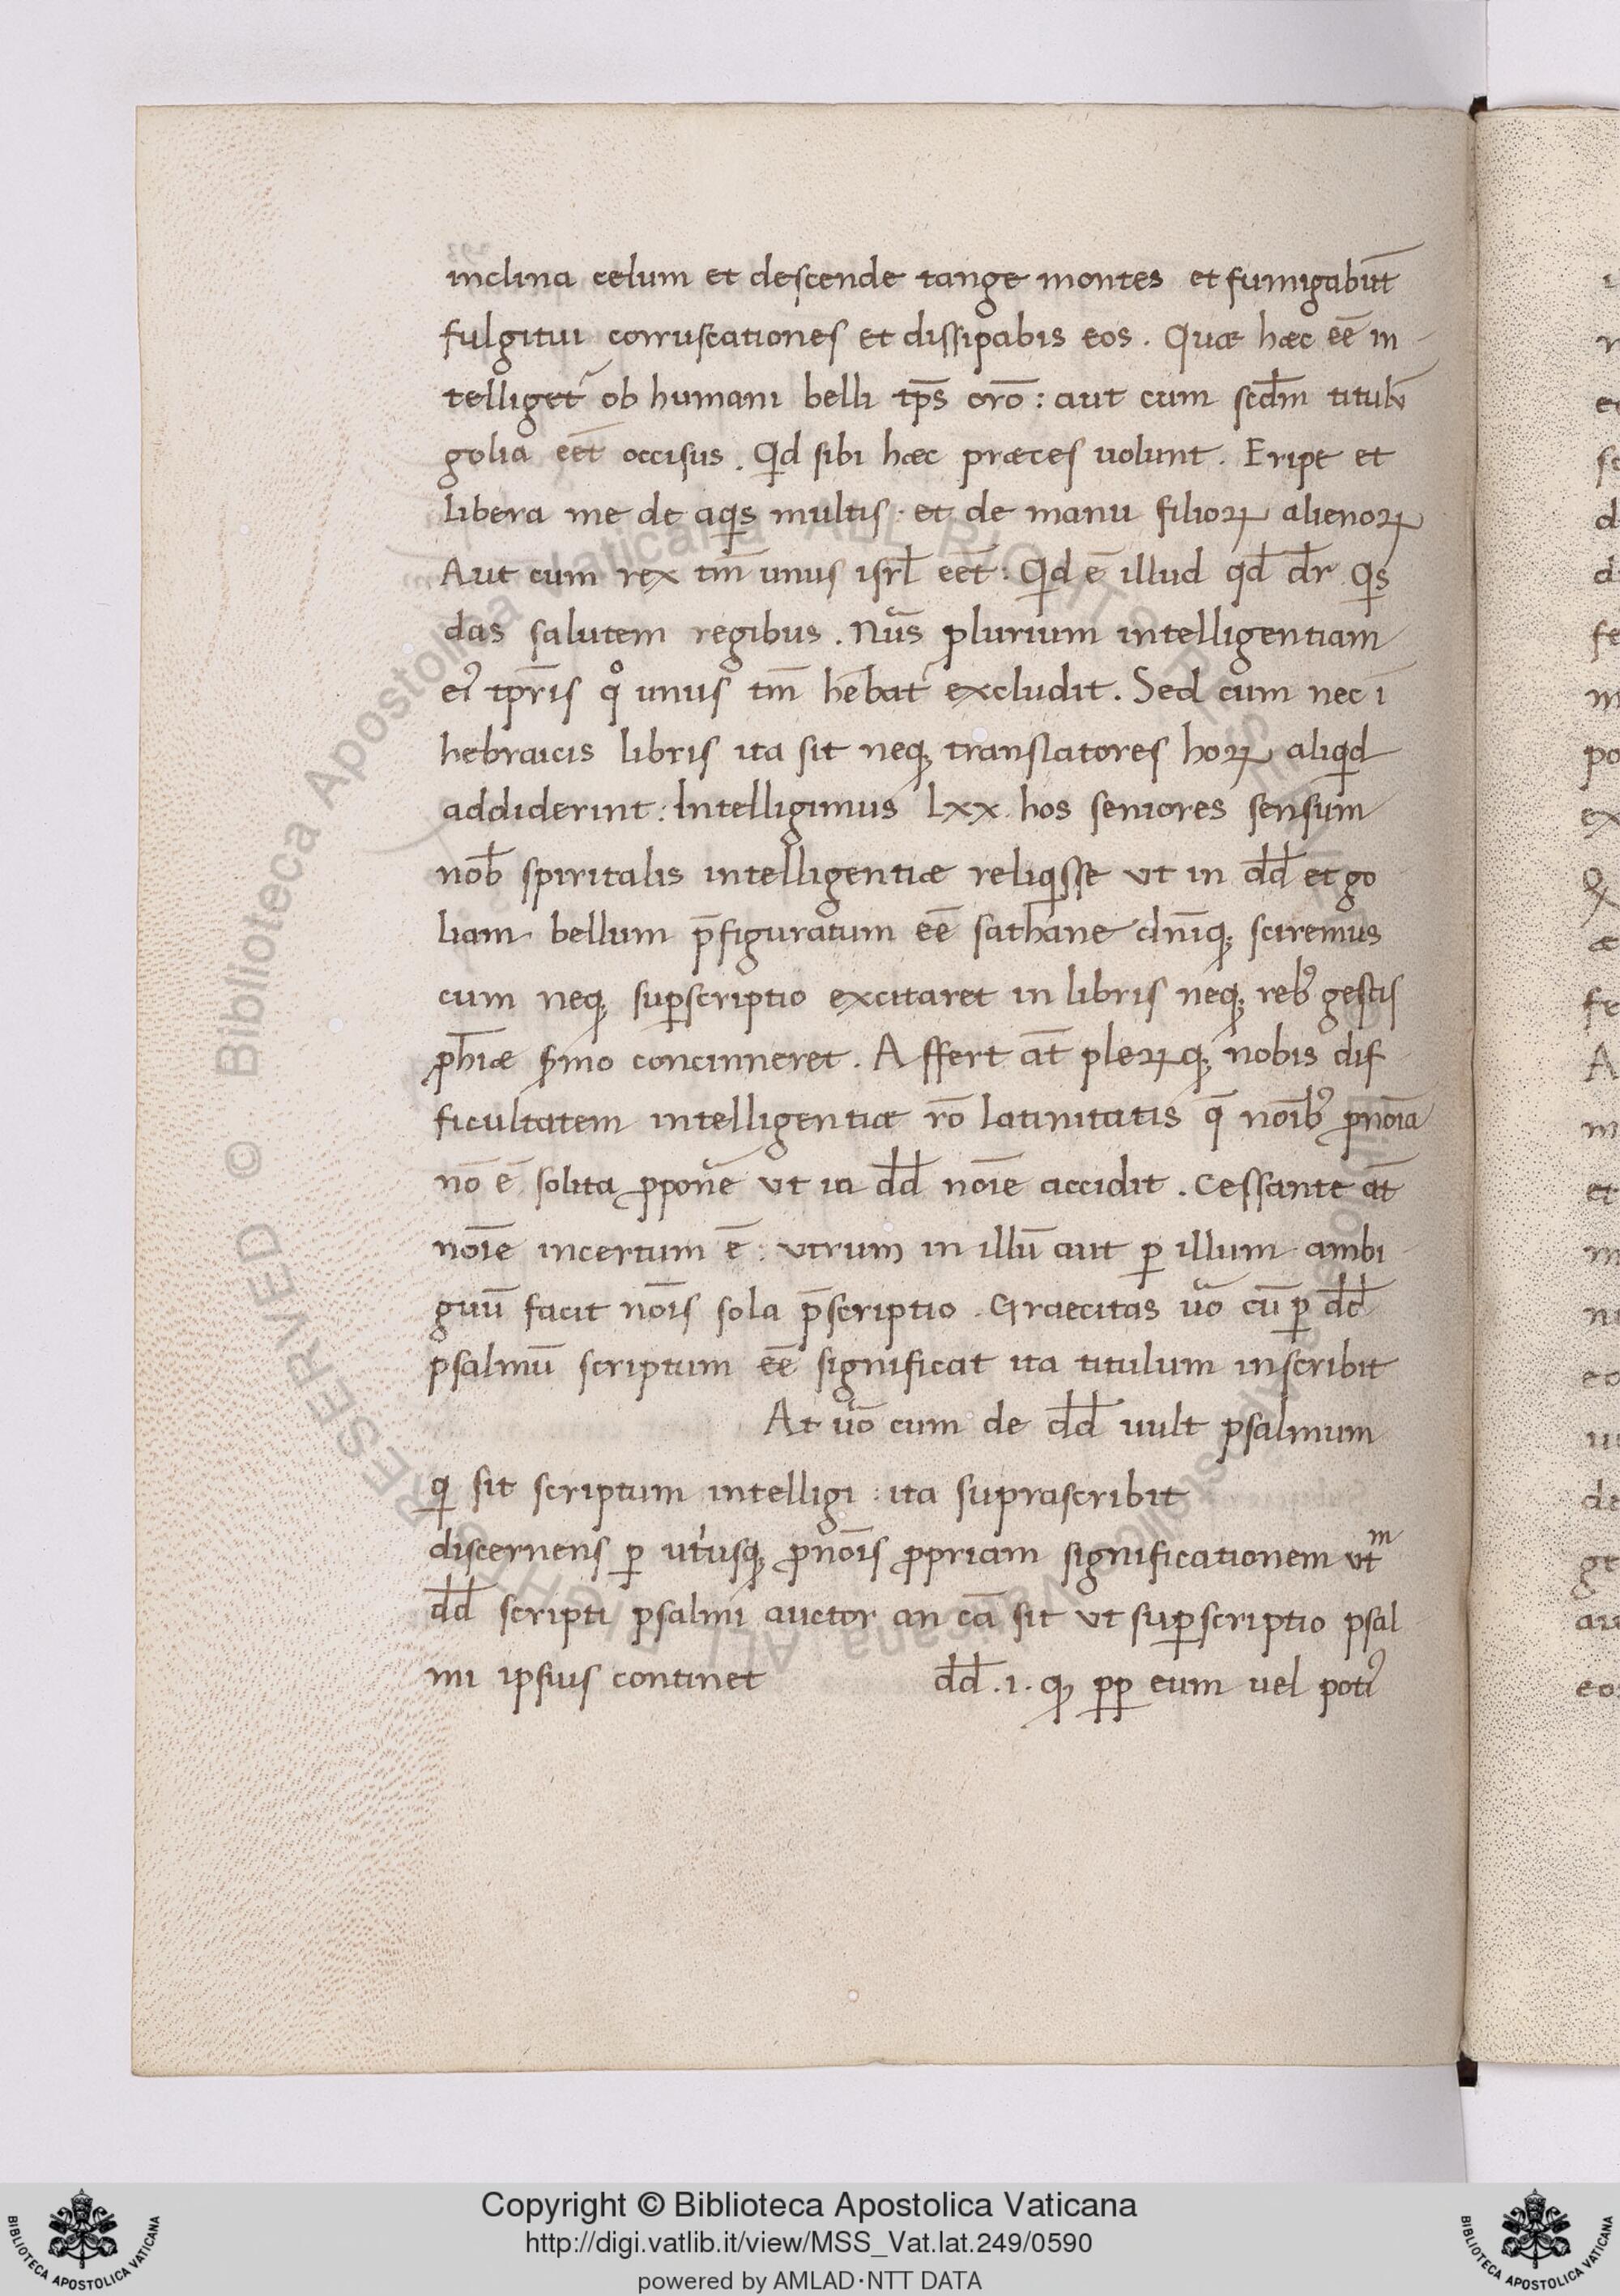 inclina celum et descende tange montes et fumigabūt
fulgitui corruscationes et dissipabis eos . Quæ hæc eē in
telliget᷑ ob humani belli tp̄s orō : aut cum scd̄m titulū
golia eēt occisus . Qd sibi hæc præces uolunt . Eripe et
libera me de aqs multis · et de manu filioꝝ alienoꝝ
Aut cum rex tm̄ unus isrl̄ eēt : Qd ē illud qd̄ dr̄ Qs
das salutem regibus . Nūs plurium intelligentiam
eꝰ tp̄ris qͦ unus tm̄ hēbat᷑ excludit . Sed cum nec ī
hebraicis libris ita sit neqꝫ translatores hoꝝ aliqd
addiderint : Intelligimus lxx hos seniores sensum
nob̄ spiritalis intelligentiæ reliqsse ut in dd̄ et go
liam bellum p̄figuratum eē sathane dn̄iqꝫ sciremus
cum neqꝫ suꝑscriptio excitaret in libris neqꝫ rebꝰ gestis
ꝓhīæ s̄mo concinneret . Affert āt pleꝝqꝫ nobis dif
ficultatem intelligentiæ rō latinitatis q̄ noībꝰ ꝓnoīa
nō ē solita ꝓponē ut in dd̄ noīe accidit . Cessante āt
noīe incertum ē : utrum in illū aut ꝑ illum ambi
guū facit noīs sola p̄scriptio . Graecitas uō cū ꝑ dd̄
psalmū scriptum eē significat ita titulum inscribit
At uō cum de dd̄ uult psalmum
qi sit scriptum intelligi : ita suprascribit
discernens ꝑ ut᷑usqꝫ ꝓnoīs ꝓpriam significationem utᵐ
dd̄ scripti psalmi auctor an cā sit ut suꝑscriptio psal
mi ipsius continet dd̄ . i . qꝫ ꝓꝑ eum uel potiꝰ
Copyright © Biblioteca Apostolica Vaticana
http://digi.vatlib.it/view/MSS_Vat.lat.249/0590
powered by AMLAD·NTT DATA